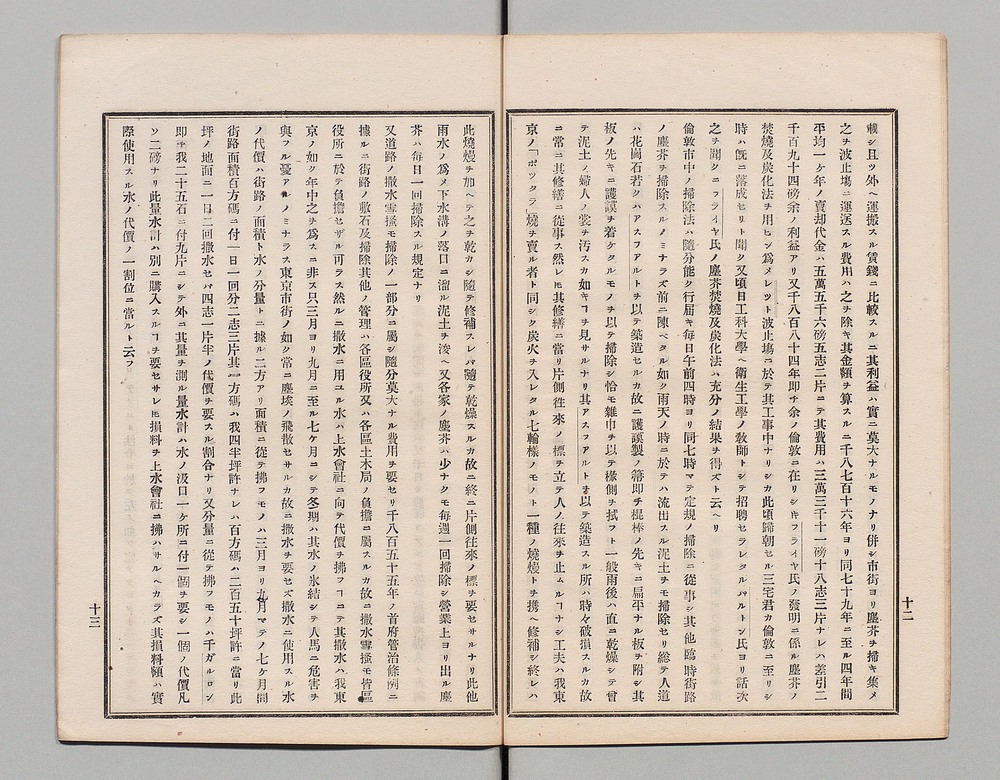 載シ且ツ外ヘ運搬スル賃錢ニ比較スルニ其利益ハ實ニ莫大ナルモノナリ併シ市街ヨリ塵芥ヲ掃キ集メ
之ヲ波止塲ニ運送スル費用ハ之ヲ除キ其金額ヲ算スルニ千八七百十六年ヨリ同七十九年ニ至ル四年間
平均一ケ年ノ賣却代金ハ五萬五千六磅五志二片ニテ其費用ハ三萬三千十一磅十八志三片ナレハ差引二
千百九十四磅余ノ利益アリ又千八百八十四年即チ余ノ倫敦ニ在リシキフライヤ氏ノ發明ニ係ル塵芥ノ
焚燒及炭化法ヲ用ヒン爲メレツト波止塲ニ於テ其工事中ナリシカ此頃歸朝セル三宅君カ倫敦ニ至リシ
時ハ既ニ落成セリト聞ク又頃日工科大學ヘ衛生工學ノ敎師トシテ招聘セラレタルバルトン氏ヨリ話次
之ヲ聞クニフライヤ氏ノ塵芥焚燒及炭化法ハ充分ノ結果ヲ得ズト云ヘリ
倫敦市中ノ掃除法ハ隨分能ク行屆キ毎日午前四時ヨリ同七時マデ定規ノ掃除ニ從事シ其他臨時街路
ノ塵芥ヲ掃除スルノミナラズ前ニ陳ベタル如ク雨天ノ時ニ於テハ流出スル泥土ヲモ掃除セリ総テ人道
ハ花崗石若クハアスフアルトヲ以テ築造ニルカ故ニ護謨製ノ箒即チ提棒ノキニ扁平ナル板ヲ附シ其
板ノ先キニ護謨ヲ着ケタルモノヲ以テ掃除シ恰モ雜巾ヲ以テ椽側ヲ拭フト一般雨後ハ直ニ乾燥シテ曾
テ泥土ノ婦人ノ裳ヲ汚スカ如キヿヲ見サルナリ其アスフアルトヲ以テ築造スル所ハ時々破損スルカ故
ニ常ニ其修繕ニ從事ス然レヒ其修繕ニ當リ片側往來ノ標ヲ立テ人ノ往來ヲ止ムルヿナシ工夫ハ我東
京ノ「ボツタラ」燒ヲ賣ル者ト同シク炭火ヲ入レタル七輪樣ノモノト一種ノ燒熳トヲ携ヘ修補シ終レハ
十二
此燒熳ヲ加ヘテ之ヲ乾カシ隨テ修補スレバ隨テ乾燥スルカ故ニ終ニ片側往來ノ標ヲ要セサルナリ此他
雨水ノ爲メ下水溝ノ落口ニ溜ル泥土ヲ浚ヘ又各家ノ塵芥ハ少ナクモ毎週一回掃除シ營業上ヨリ出ル塵
芥ハ毎日一回掃除スル規定ナリ
又道路ノ撒水雪搔モ掃除ノ一部分ニ屬シ隨分莫大ナル費用ヲ要セリ千八百五十五年ノ首府管治條例ニ
據ルニ街路ノ敷石及掃除其他ノ管理ハ各區役所又ハ各區土木局ノ負擔ニ屬スルカ故ニ撒水雪搔モ皆區
役所ニ於テ負擔セザル可ラス然ルニ撒水ニ用ユル水ハ上水會社ニ向テ代價ヲ拂フヿニテ其撒水ハ我東
京ノ如ク年中之ヲ爲スニ非ス只三月ヨリ九月ニ至ル七ケ月ニシテ冬期ハ其水ノ氷結シテ人馬ニ危害ヲ
與フル憂アルノミナラス東京市街ノ如ク常ニ塵埃ノ飛散セサルカ故ニ撒水ヲ要セズ撒水ニ使用スル水
ノ代價ハ街路ノ面積ト水ノ分量トニ據ル二方アリ面積ニ從テ拂フモノハ三月ヨリ九月マテノ七ケ月間
街路面積百方碼ニ付一日一回分二志三片其一方碼ハ我四半坪許ナレハ百方碼ハ二百五十坪許ニ當リ此
坪ノ地面ニ一日二回撒水セバ四志一片半ノ代價ヲ要スル割合ナリ又分量ニ從テ拂フモノハ千ガルロン
即チ我二十五石ニ付九片ニシテ外ニ其量ヲ測ル量水計ハ水ノ汲口一ケ所ニ付一個ヲ要シ一個ノ代價凡
ソ二磅ナリ此量水計ハ別ニ購入スルヿヲ要セサレヒ損料ヲ上水會社ニ拂ハサルヘカラズ其損料額ハ實
際使用スル水ノ代價ノ一割位ニ當ルト云フ
十三